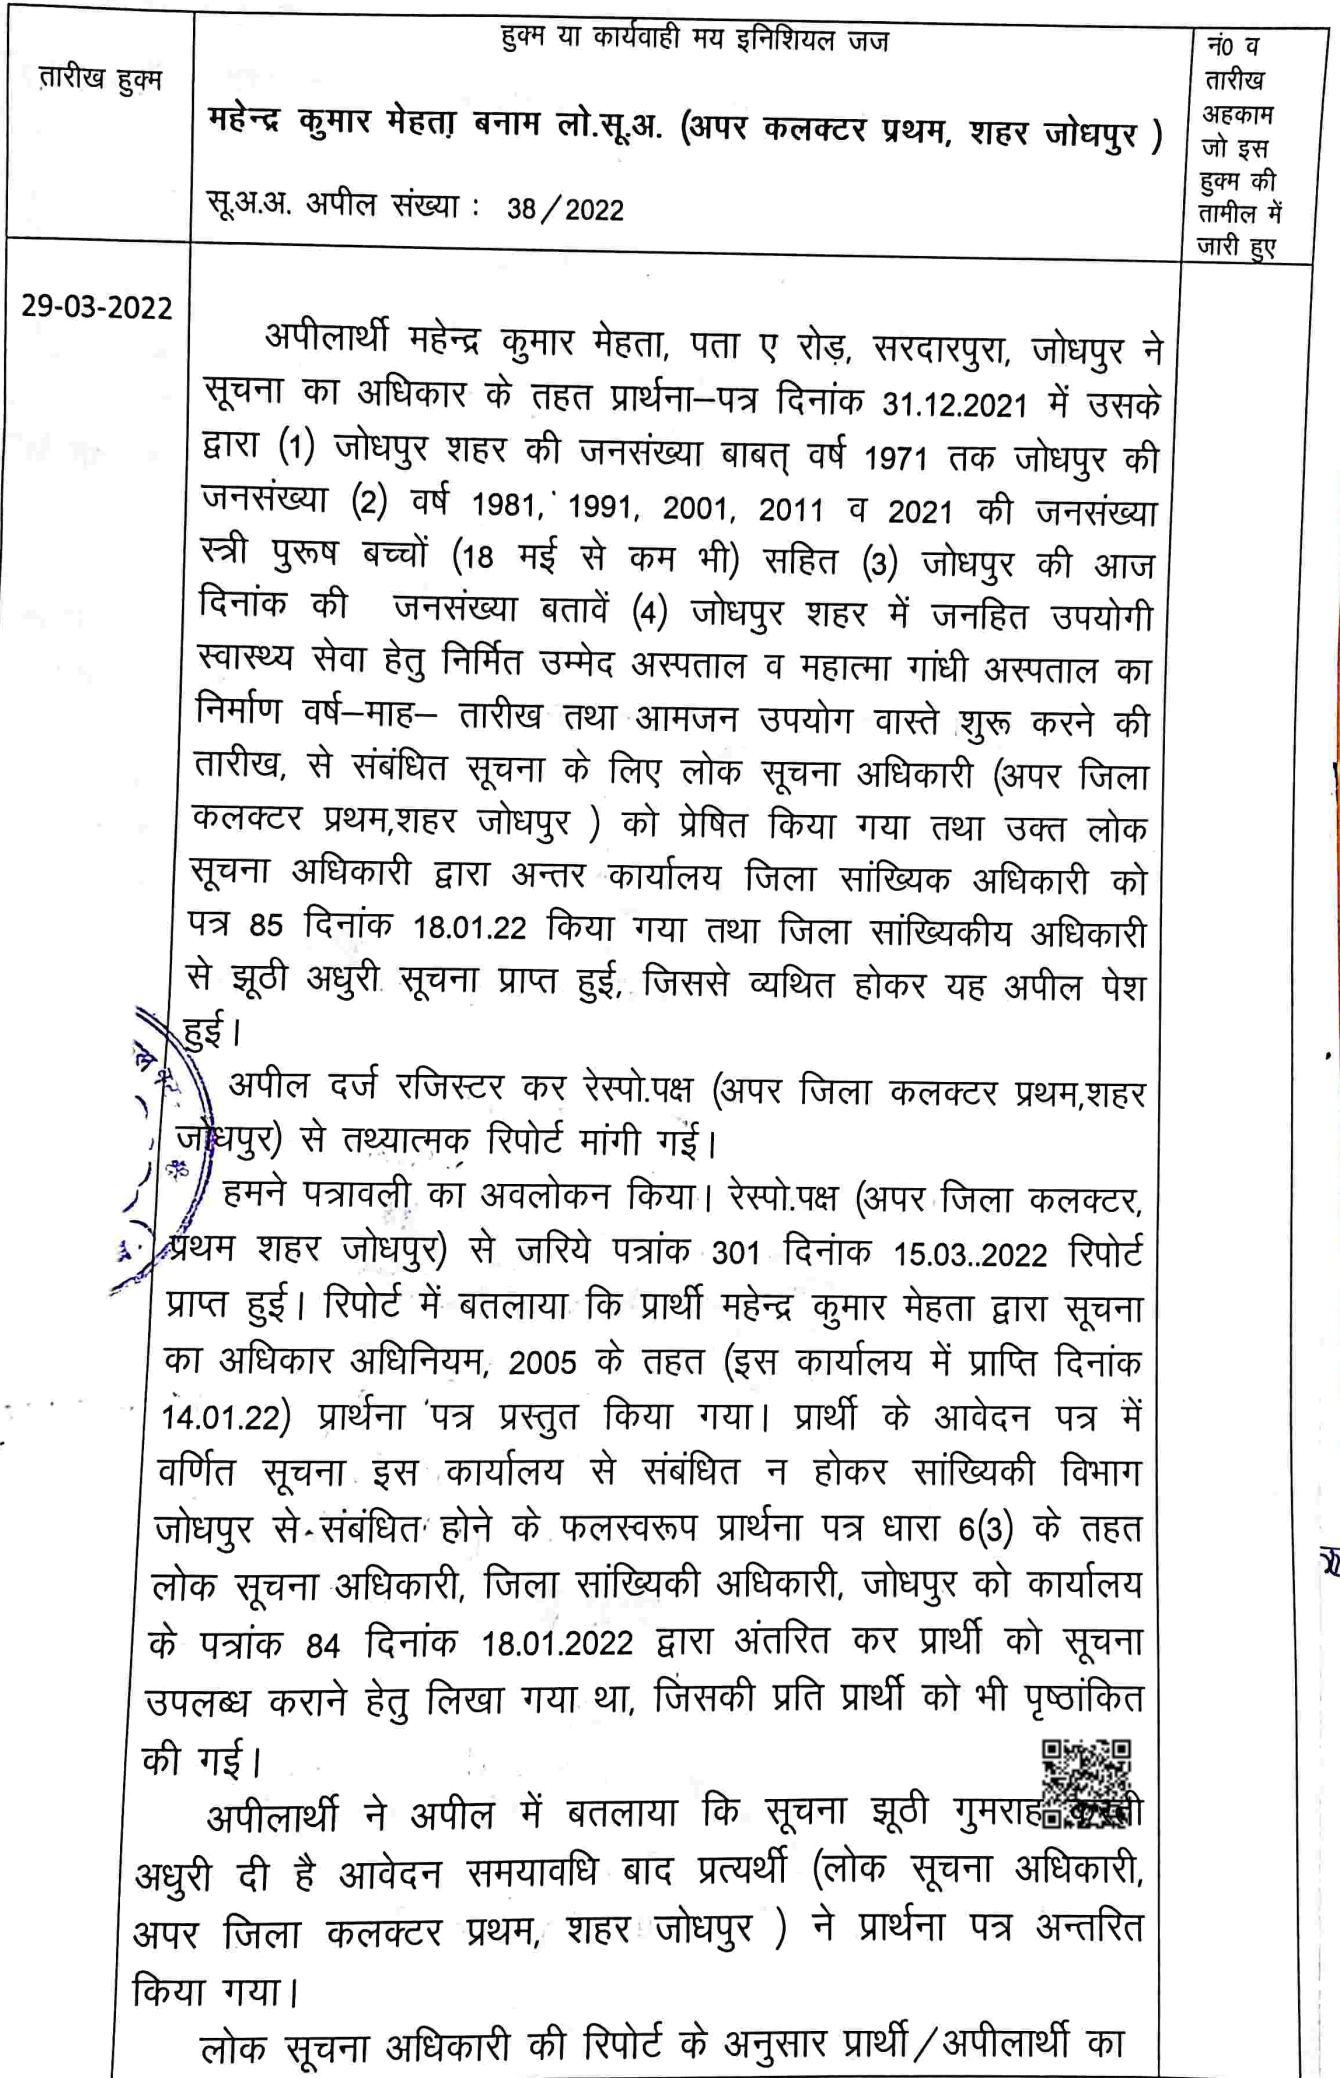 हुक्म या कार्यवाही मय इनिशियल जज
तारीख हुक्म
महेन्द्र कुमार मेहता बनाम लो.सू.अ. (अपर कलक्टर प्रथम, शहर जोधपुर )
सू.अ.अ. अपील संख्या : 38/2022
नं0 व
तारीख
अहकाम
जो इस
हुक्म की
तामील में
जारी हुए
29-03-2022
अपीलार्थी महेन्द्र कुमार मेहता, पता ए रोड़, सरदारपुरा, जोधपुर ने
सूचना का अधिकार के तहत प्रार्थना–पत्र दिनांक 31.12.2021 में उसके
द्वारा (1) जोधपुर शहर की जनसंख्या बाबत् वर्ष 1971 तक जोधपुर की
जनसंख्या (2) वर्ष 1981, 1991, 2001, 2011 व 2021 की जनसंख्या
स्त्री पुरूष बच्चों (18 मई से कम भी) सहित (3) जोधपुर की आज
दिनांक की जनसंख्या बतावें (4) जोधपुर शहर में जनहित उपयोगी
स्वास्थ्य सेवा हेतु निर्मित उम्मेद अस्पताल व महात्मा गांधी अस्पताल का
निर्माण वर्ष–माह– तारीख तथा आमजन उपयोग वास्ते शुरू करने की
तारीख, से संबंधित सूचना के लिए लोक सूचना अधिकारी (अपर जिला
कलक्टर प्रथम,शहर जोधपुर ) को प्रेषित किया गया तथा उक्त लोक
सूचना अधिकारी द्वारा अन्तर कार्यालय जिला सांख्यिक अधिकारी को
पत्र 85 दिनांक 18.01.22 किया गया तथा जिला सांख्यिकीय अधिकारी
से झूठी अधुरी सूचना प्राप्त हुई, जिससे व्यथित होकर यह अपील पेश
हुई।
अपील दर्ज रजिस्टर कर रेस्पो.पक्ष (अपर जिला कलक्टर प्रथम,शहर
जोधपुर) से तथ्यात्मक रिपोर्ट मांगी गई।
हमने पत्रावली का अवलोकन किया। रेस्पो.पक्ष (अपर जिला कलक्टर,
प्रथम शहर जोधपुर) से जरिये पत्रांक 301 दिनांक 15.03..2022 रिपोर्ट
प्राप्त हुई। रिपोर्ट में बतलाया कि प्रार्थी महेन्द्र कुमार मेहता द्वारा सूचना
का अधिकार अधिनियम, 2005 के तहत (इस कार्यालय में प्राप्ति दिनांक
14.01.22) प्रार्थना पत्र प्रस्तुत किया गया। प्रार्थी के आवेदन पत्र में
वर्णित सूचना इस कार्यालय से संबंधित न होकर सांख्यिकी विभाग
जोधपुर से संबंधित होने के फलस्वरूप प्रार्थना पत्र धारा 6(3) के तहत
लोक सूचना अधिकारी, जिला सांख्यिकी अधिकारी, जोधपुर को कार्यालय
के पत्रांक 84 दिनांक 18.01.2022 द्वारा अंतरित कर प्रार्थी को सूचना
उपलब्ध कराने हेतु लिखा गया था, जिसकी प्रति प्रार्थी को भी पृष्ठांकित
की गई।
अपीलार्थी ने अपील में बतलाया कि सूचना झूठी गुमराह करती
अधुरी दी है आवेदन समयावधि बाद प्रत्यर्थी (लोक सूचना अधिकारी,
अपर जिला कलक्टर प्रथम, शहर जोधपुर ) ने प्रार्थना पत्र अन्तरित
किया गया।
लोक सूचना अधिकारी की रिपोर्ट के अनुसार प्रार्थी/अपीलार्थी का